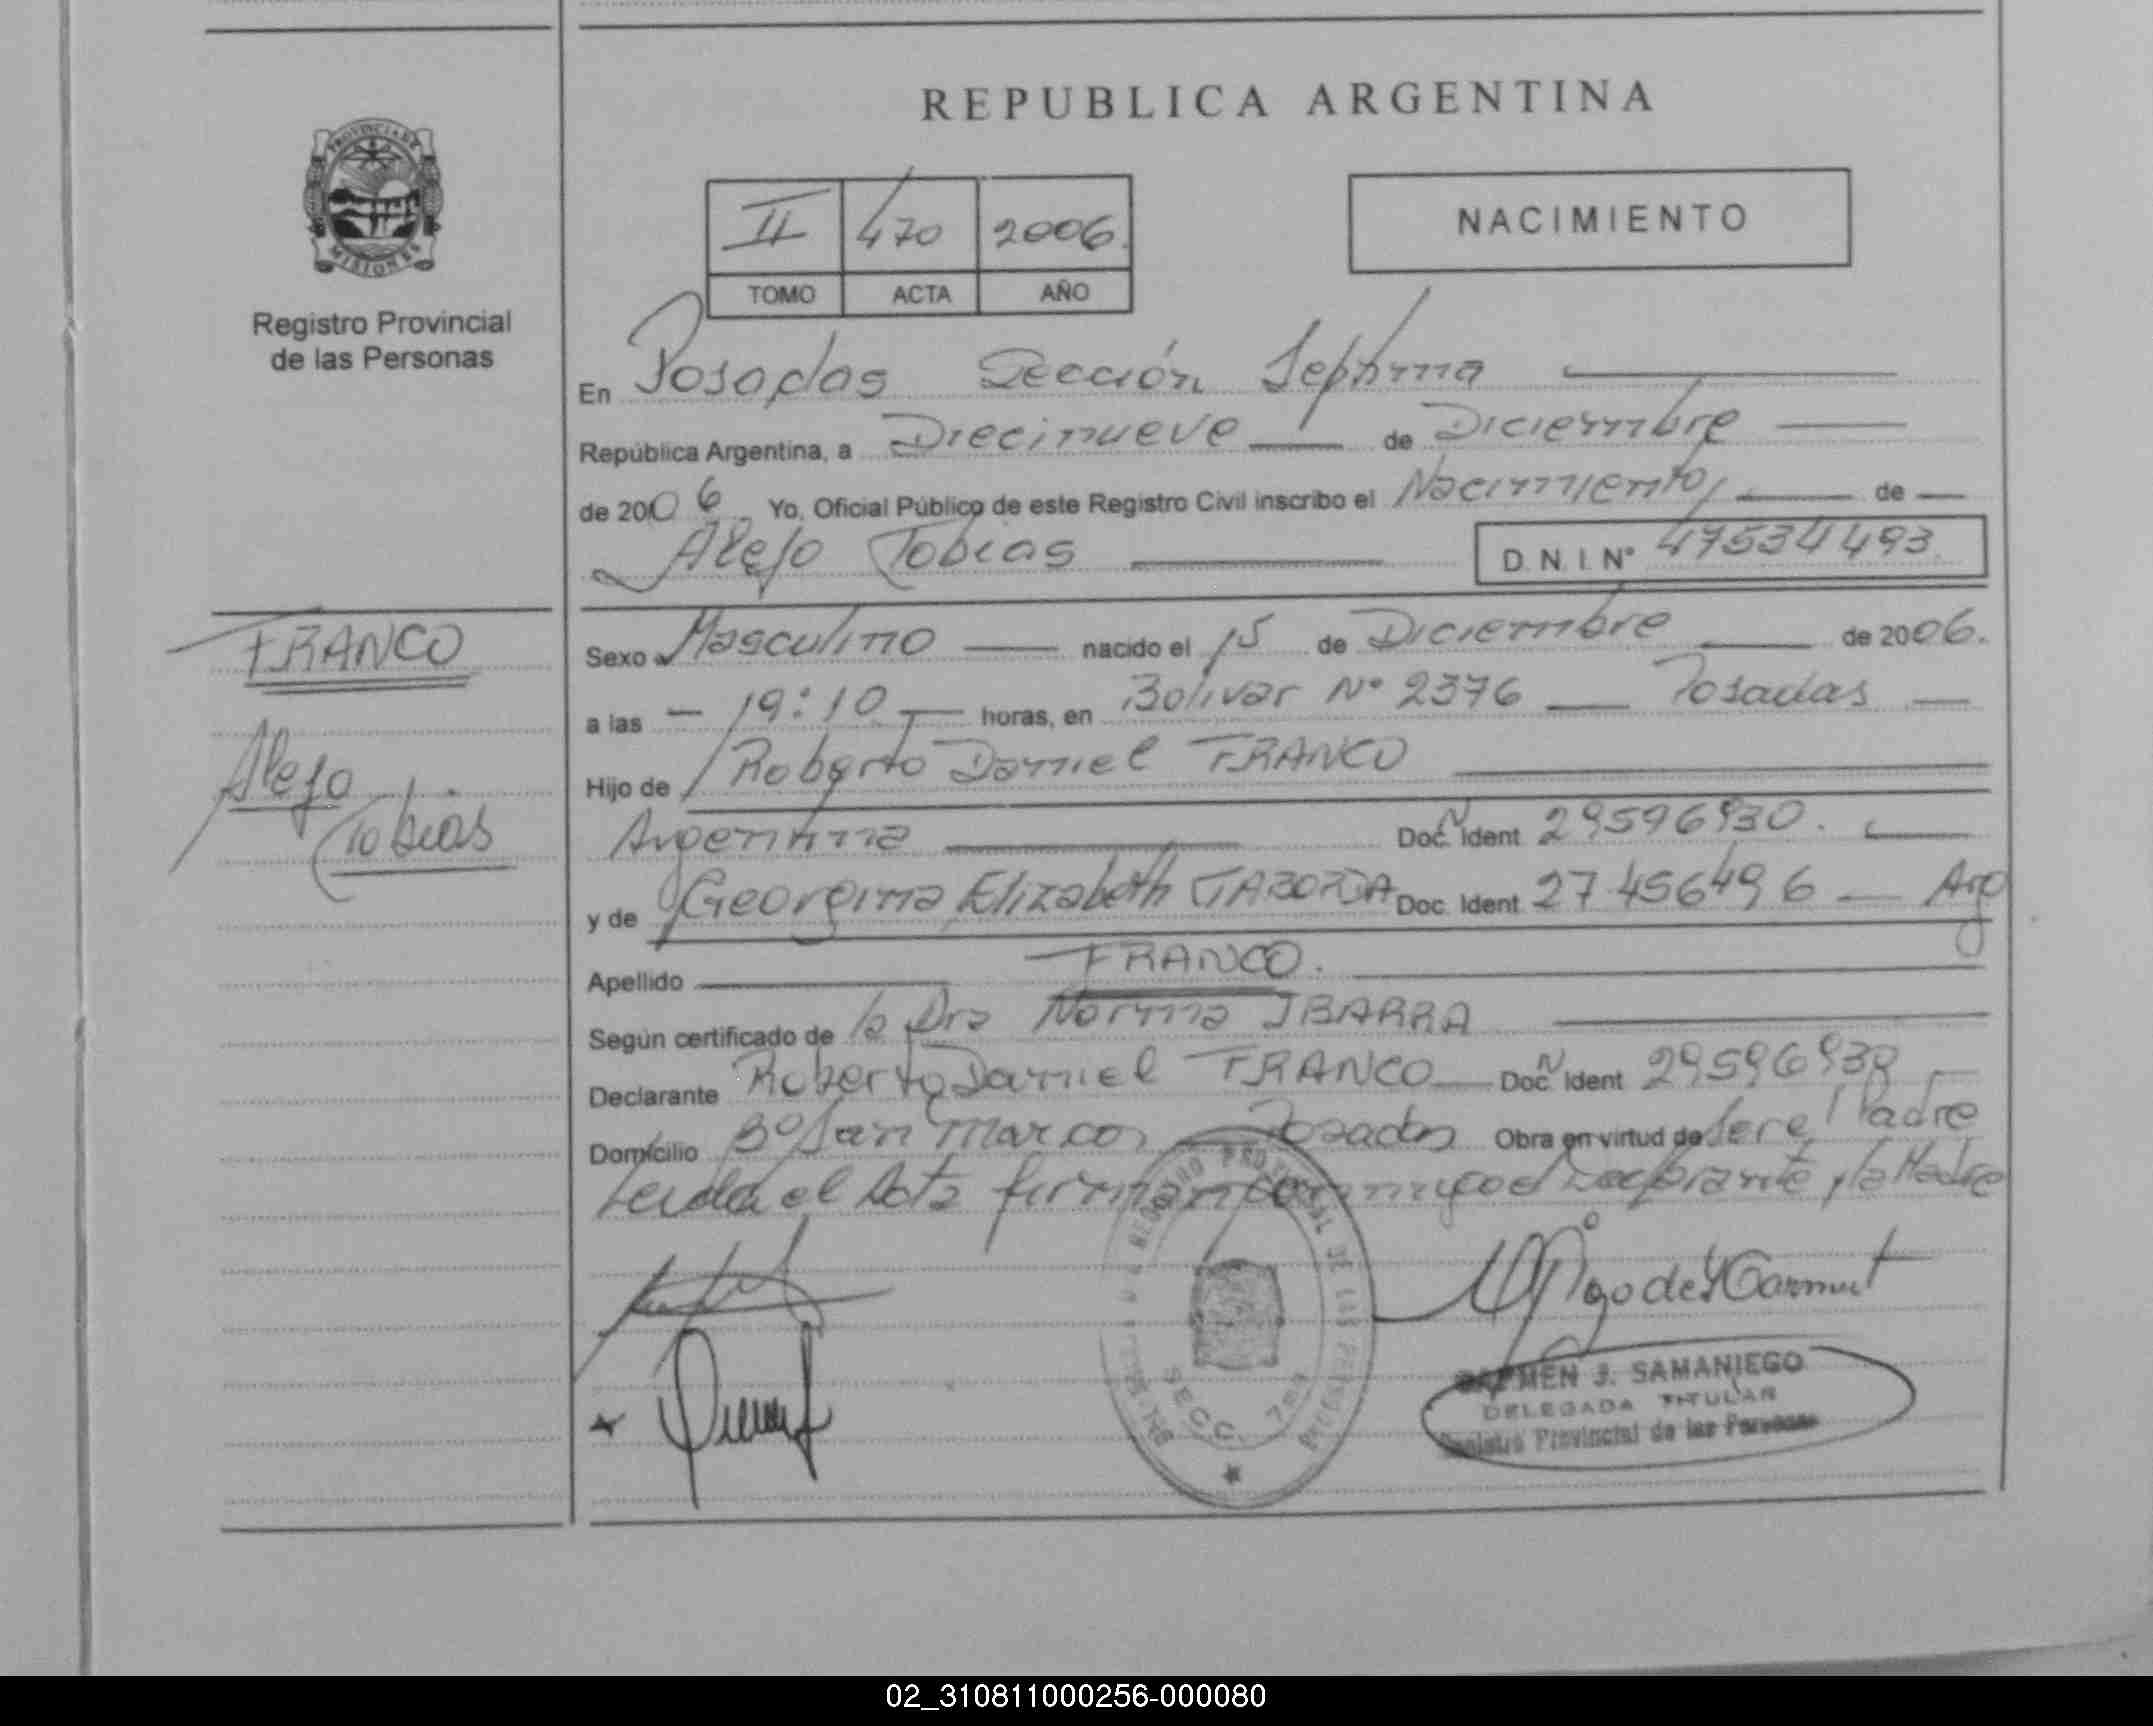 REPUBLICA ARGENTINA
PROVINCIA DE
MISIONES
Registro Provincial
de las Personas
II 470 2006
TOMO ACTA AÑO
NACIMIENTO
En Posadas Sección Séptima
República Argentina, a Diecinueve de Diciembre
de 2006 Yo, Oficial Público de este Registro Civil inscribo el Nacimiento de
Alejo Tobias D.N.I. N° 47534493
FRANCO
Alejo
Tobias
Sexo Masculino nacido el 15 de Diciembre de 2006.
a las 19:10 horas, en Bolivar N° 2376 Posadas
Hijo de Roberto Daniel FRANCO
Argentina Doc. N Ident 29596930.
y de Georgina Elizabeth Doc. Ident 27456496 Arg
Apellido FRANCO.
Según certificado de la Dra Norma IBARRA
Declarante Roberto Daniel FRANCO Doc. N Ident 29596930
Domicilio B° San Marcos Posadas Obra en virtud de ser el Padre
Leida el Acta firman conmigo el Declarante y la Madre
REGISTRO PROVINCIAL DE LAS PERSONAS
SECC. 7ma
CARMEN J. SAMANIEGO
DELEGADA TITULAR
Registro Provincial de las Personas
02_310811000256-000080